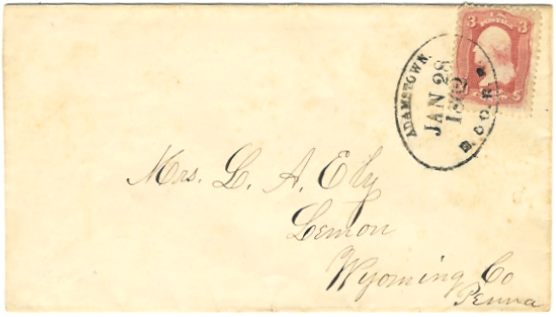 3 3
ADAMSTOWN.
JAN 28
1862
Mrs. L. A. Ely
Lemon
Wyoming Co
Penna